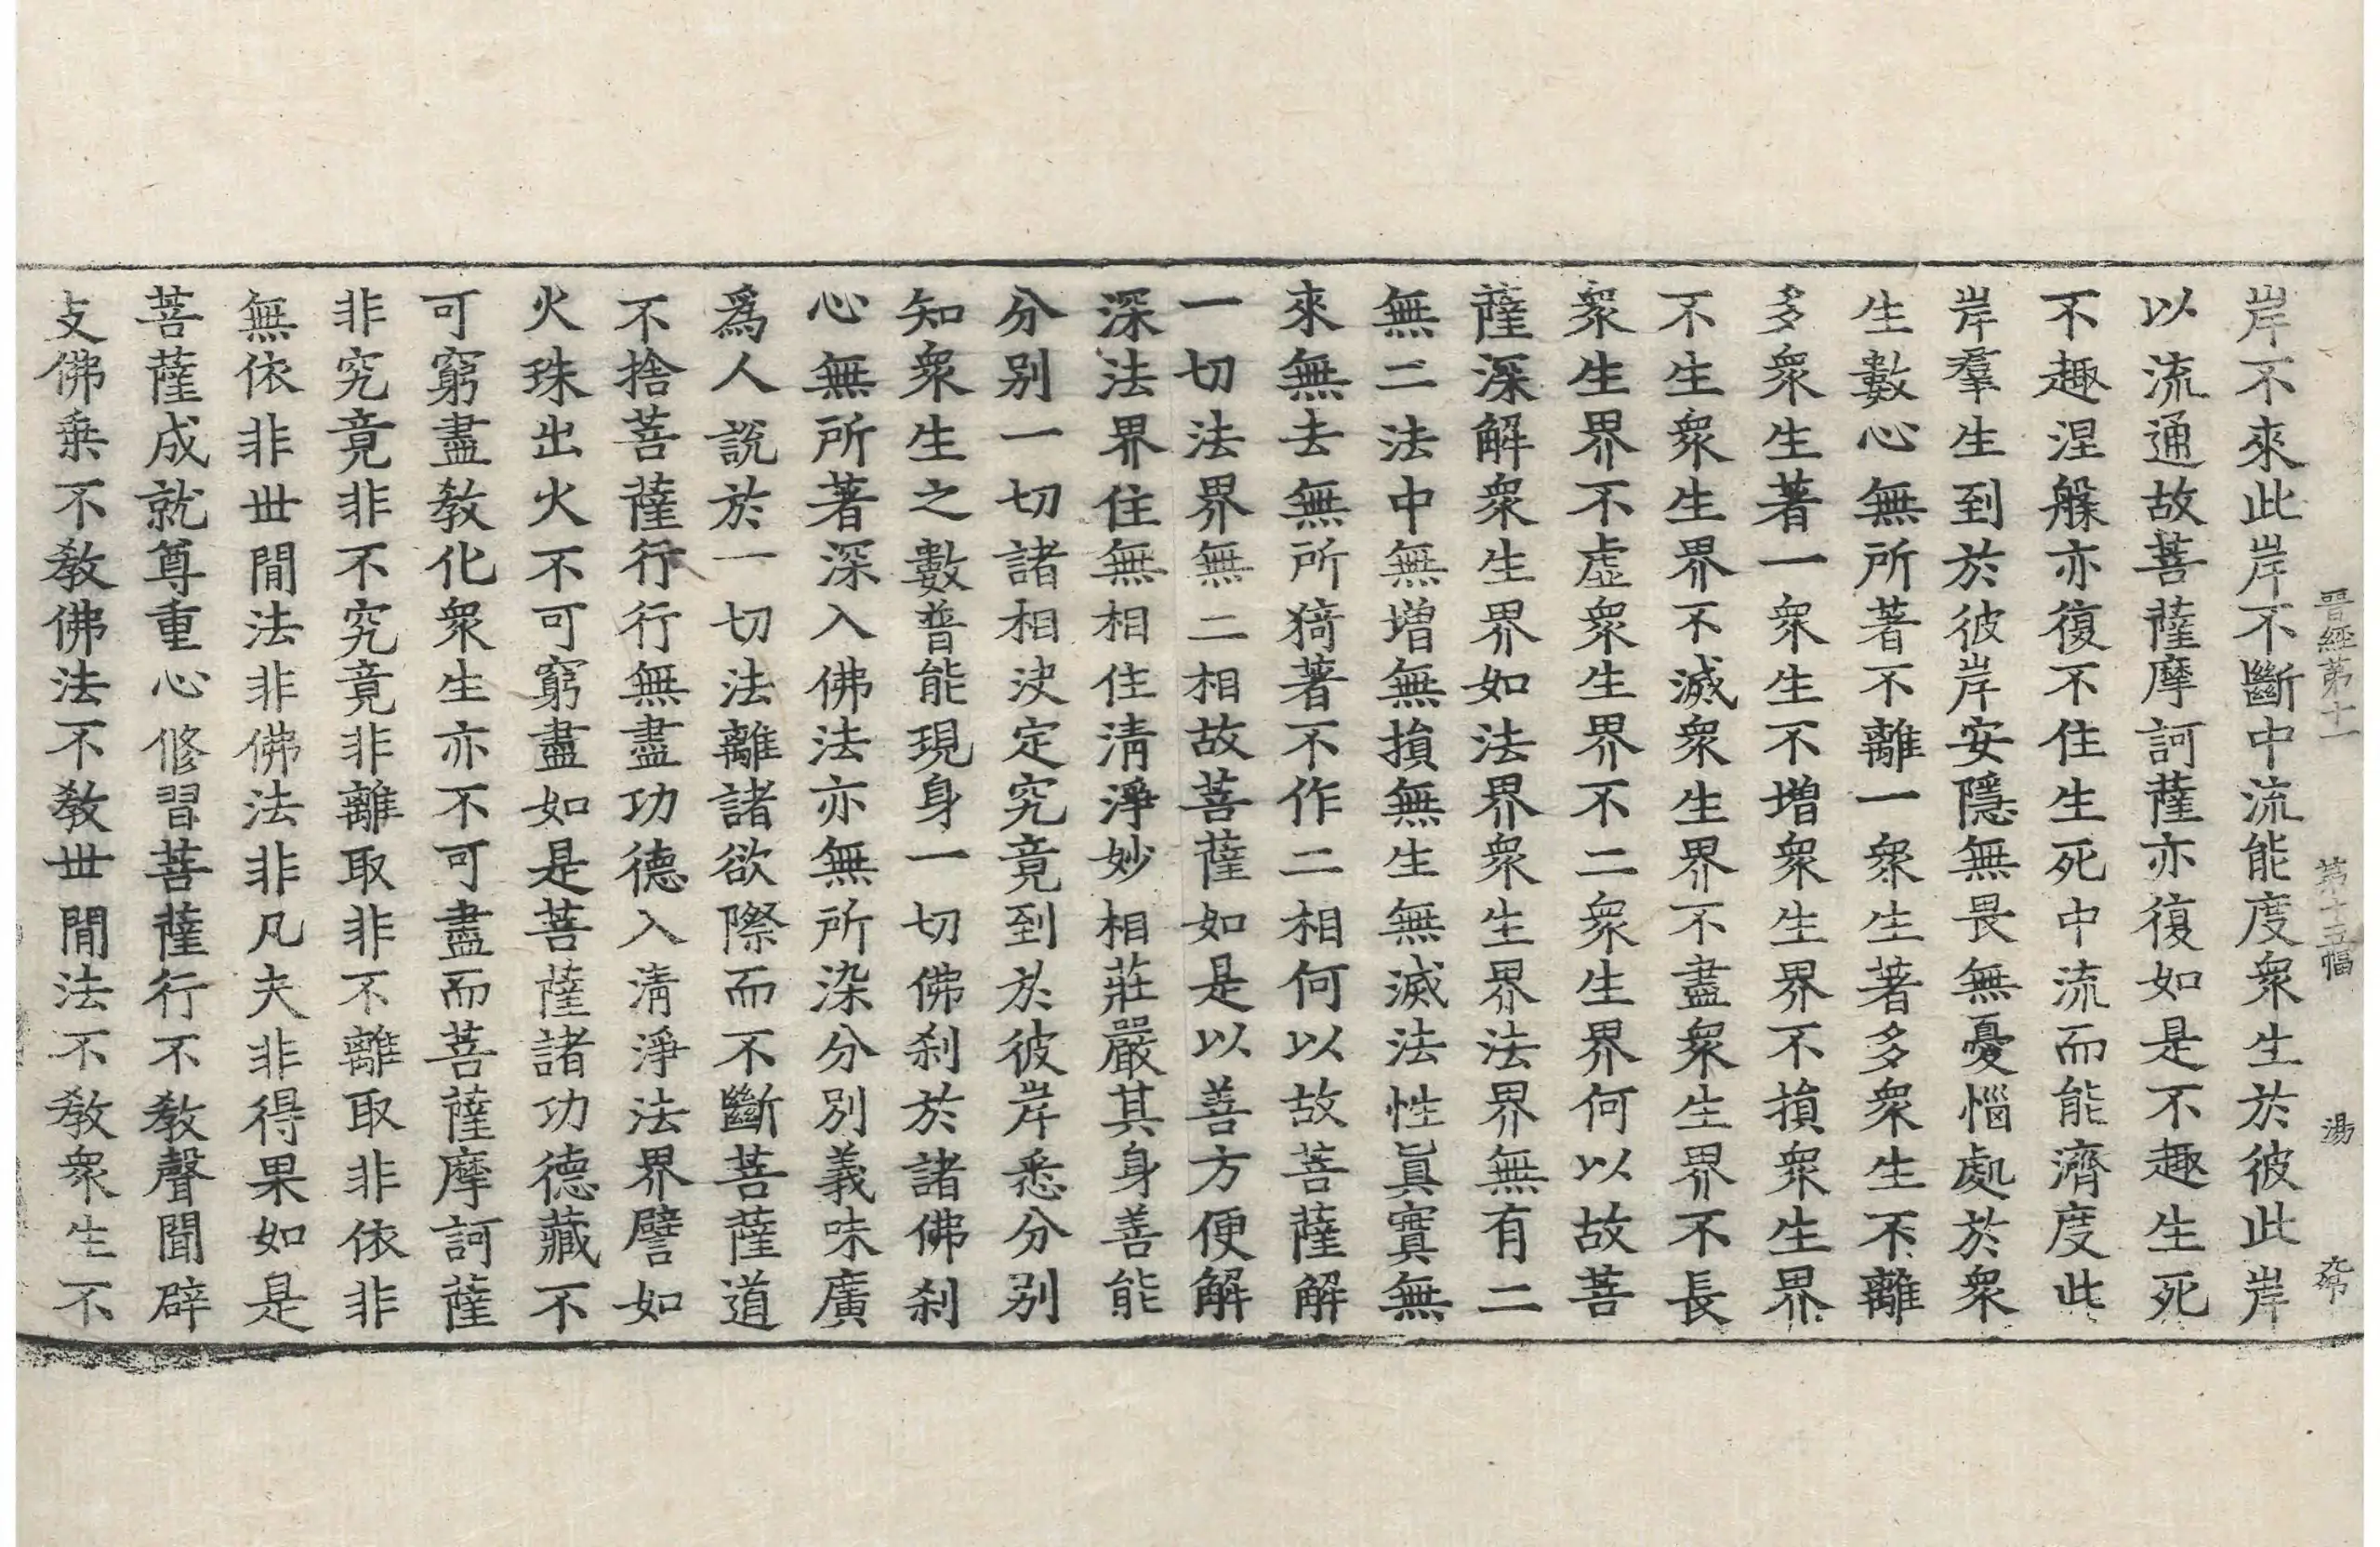 晉經第十一 第十五幅 湯
岸不來此岸不斷中流能度衆生於彼此岸
以流通故菩薩摩訶薩亦復如是不趣生死
不趣涅槃亦復不住生死中流而能濟度此
岸羣生到於彼岸安隱無畏無憂惱處於衆
生數心無所著不離一衆生著多衆生不離
多衆生著一衆生不增衆生界不損衆生界
不生衆生界不滅衆生界不盡衆生界不長
衆生界不虛衆生界不二衆生界何以故菩
薩深解衆生界如法界衆生界法界無有二
無二法中無增無損無生無滅法性眞實無
來無去無所猗著不作二相何以故菩薩解
一切法界無二相故菩薩如是以善方便解
深法界住無相住清淨妙相莊嚴其身善能
分別一切諸相決定究竟到於彼岸悉分別
知衆生之數普能現身一切佛刹於諸佛刹
心無所著深入佛法亦無所染分別義味廣
爲人說於一切法離諸欲際而不斷菩薩道
不捨菩薩行行無盡功德入清淨法界譬如
火珠出火不可窮盡如是菩薩諸功德藏不
可窮盡教化衆生亦不可盡而菩薩摩訶薩
非究竟非不究竟非離取非不離取非依非
無依非世間法非佛法非凡夫非得果如是
菩薩成就尊重心修習菩薩行不教聲聞辟
支佛乗不教佛法不教世間法不教衆生不